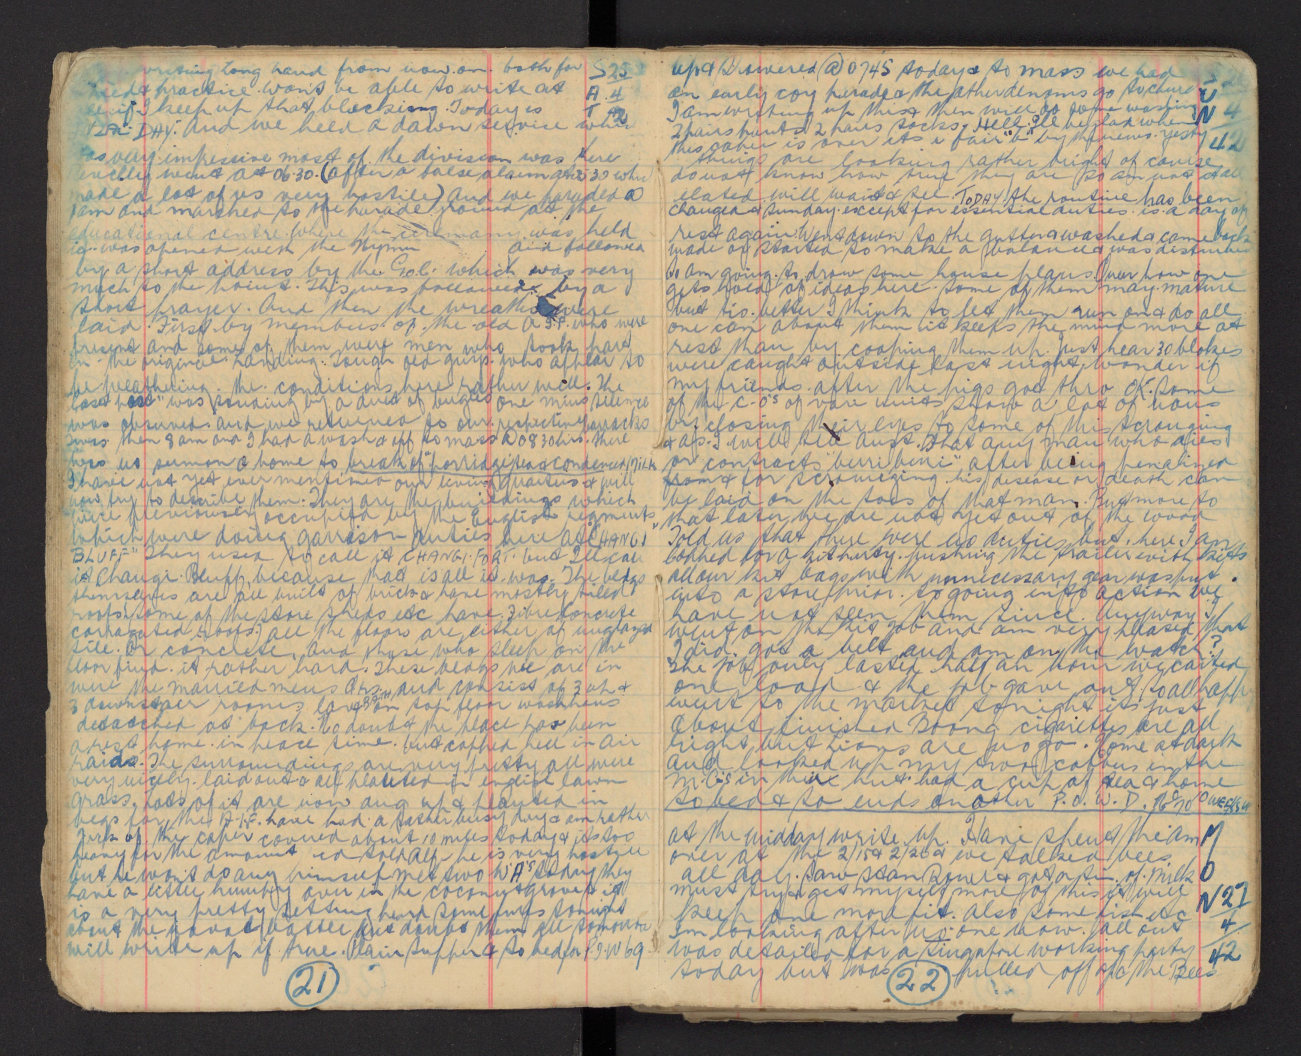 writing long hand from now on both for S 25
need & practice wont be able to write at A 4
if I keep up that blocking. Today is T 42
DAY. And we held a dawn service which
was very impressive most of the division was there
went at 06.30. (after a false alarm at 2.30 which
made a lot of us very hostile) And we paraded @
7am and marched to the parade ground at the
educational centre where the was held
it was opened with the Hymn and followed
by a short address by the G.o.C. which was very
much to the point. This was followed by a
short prayer. And then the wreaths were
laid. First by members of the old A.I.F. who were
present and some of them were men who took part
in the original landing. Tough old guys who appear to
be weathering the conditions here rather well. The
last post was sounding by a duet of bugles one mins silence
was observed and we returned to our respective
was then 8 am and I had a wash & off to mass @ 0830 hrs. there
was no sermon & home to break of "porridge tea & condensed milk
I have not yet ever mentioned our living quarters & will
now try to describe them. They are the buildings which
were previously occupied by the English regiments
which were doing garrison duties here at "CHANGI
BLUFF" They used to call it CHANGI FORT. but I'll call
it Changi Bluff, because that is all it was. The bldgs
themselves are all built of brick & have mostly tiled
roofs. Some of the store sheds etc have Fibro Concrete
corrugated roofs, all the floors are either of unglazed
tile or concrete, and those who sleep on the
floor find it rather hard. These bldgs we are in
were the married mens Qrs and consist of 3 up &
3 downstair rooms lav & on top floor washhouse
detached at back. No doubt the place has been
a rest home in peace time. but copped hell in air
raids. The surroundings are very pretty all were
very nicely laid out & all planted in english lawn
grass, lots of it are now dug up & planted in
vegs for the A.I.F. have had a rather busy day & am rather
of the caper covered about 10 miles today & its too
many for the amount so told he is very hostile
but he won't do any himself met two W.A's today they
have a little humpy over in the coconut grove it
is a very pretty setting heard some furfs tonight
about the but doubt them all tomorrow
will write up if true. Plain supper & to bed for P.o.W. 69
21
up & Showered @ 0745 today & to mass we had S
an early coy parade & the other denoms go to church U
I am writing up this & then will do some washing N 4
2 pairs pants 2 pairs socks. Hell I'll be glad when 42
this caper is over its a fair "b" by the news yesty
things are looking rather bright of course
do not know how true they are so am not at all
elated. will wait & see. TODAY the routine has been
changed & Sunday except for essential duties is a day of
rest again. Went down to the gutter & washed & came back
made or started to make a & was disturbed
so am going to draw some house plans. Queer how one
gets hold of ideas here some of them may mature
but its better I think to let them run on & do all
one can about them it keeps the mind more at
rest than by cooping them up. Just hear 30 blokes
were caught outside last night. Wonder if
my friends after the pigs got thro OK. Some
of the C.O's of more units show a lot of nous
by closing their eyes to some of the scrounging
& as I will tell Aust. that any man who dies
or contracts "berri berri" after being penalised
from & for scrounging his disease or death can
be laid on the soes of that man. But more to
that later. We are now not out of the wood
Told us that there were no duties but here I am
lobbed for a fatherty. pushing the trailer with kits
all our kit bags with unnecessary gear was put
into a store prior to going into action we
have not seen them since. Anyway I
went on this job and am very pleased that
I did. got a belt and am on the watch?
The job only lasted half an hour we carted
one load & the job gave out. So all happy
went to the market tonight & its just
about finished Boong cigarettes are all
right but Lions are no go. Come at dark
and looked up my two cobbers in the
M.G's in their hut had a cup of tea & home
to bed & to ends another P.O.W.D. No 70
at the midday write up. Have spent the am M
over at the 2/15 & 2/26 & we talked bees O
all day. saw Stan & got a tin of milk N 27
must try & get myself more of this it will 4
keep one more fit. also some fish etc 42
Im looking after no: one now. all out
was detailed for a Singapore working party
today but was pulled off of the Bees
22